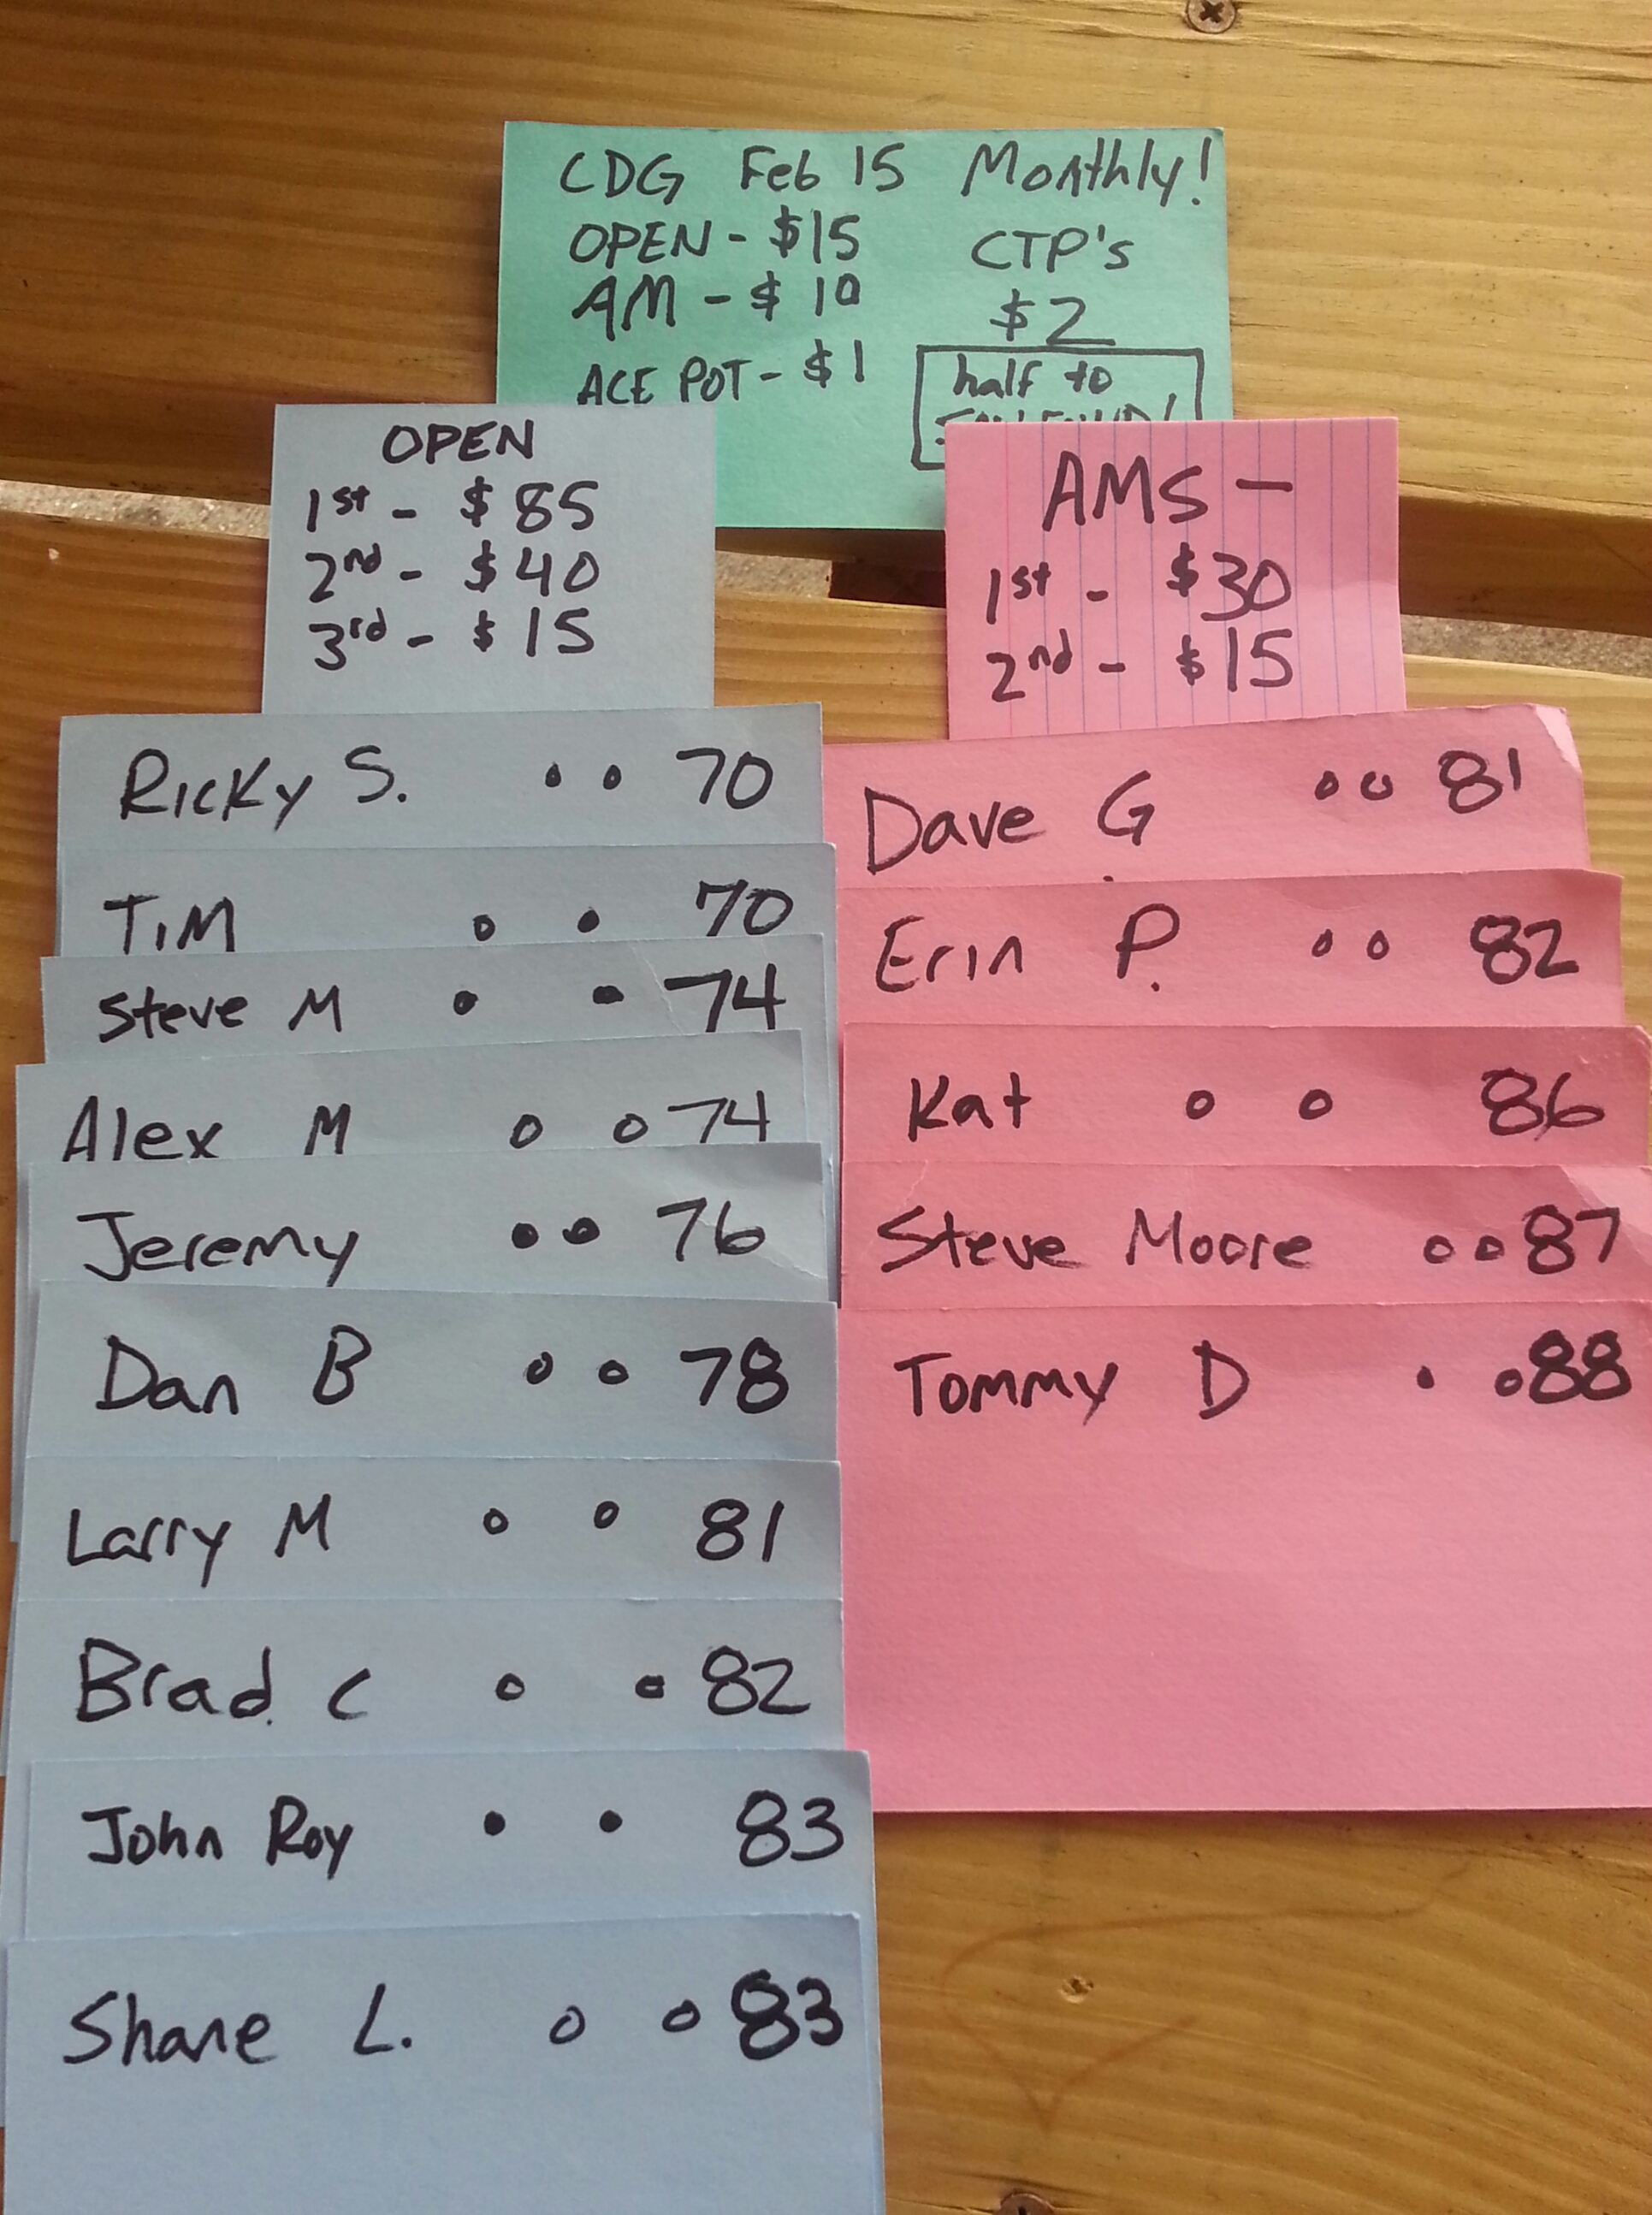 CDG Feb 15 Monthly!
OPEN - $15
AM - $10
ACE POT - $1
CTP's
$2
half to
OPEN
1st - $85
2nd - $40
3rd - $15
Ricky S. 70
TiM 70
Steve M 74
Alex M 74
Jeremy 76
Dan B 78
Larry M 81
Brad C 82
John Roy 83
Shane L. 83
AMS -
1st - $30
2nd - $15
Dave G 81
Erin P. 82
Kat 86
Steve Moore 87
Tommy D 88